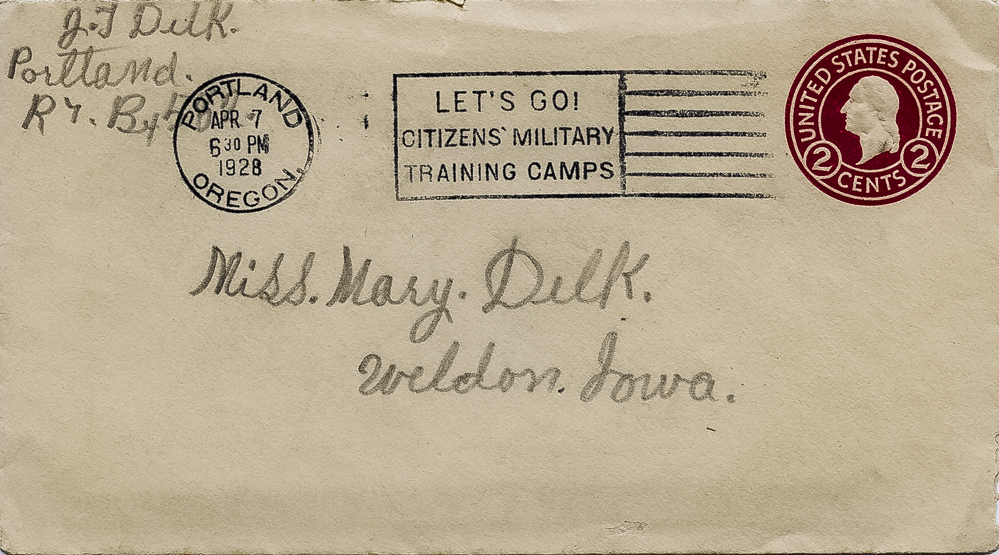 J.F Delk.
Portland.
R 7. Bx
PORTLAND
APR 7
6 30 PM
1928
OREGON.
LET'S GO!
CITIZENS' MILITARY
TRAINING CAMPS
UNITED STATES POSTAGE
2 CENTS 2
Miss. Mary. Delk.
Weldon. Iowa.